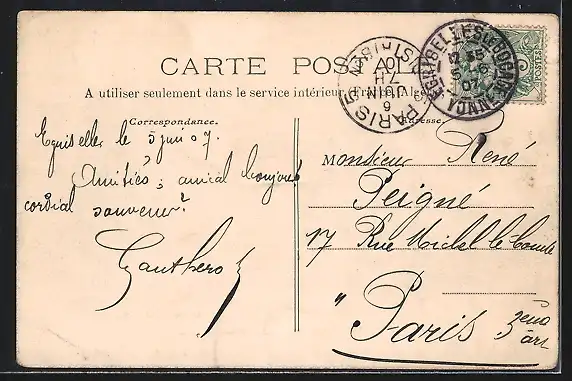 CARTE POSTALE
A utiliser seulement dans le service intérieur (France, Algérie
Correspondance.
Adresse.
Eguiseller le 5 juin 07.
Amitiés, amical bonjour
cordial souvenir
Monsieur René
Peigné
17 Rue Michel le Comte
" Paris 3eme
arr
PARIS
6
JUIN
7H
07
POSTES